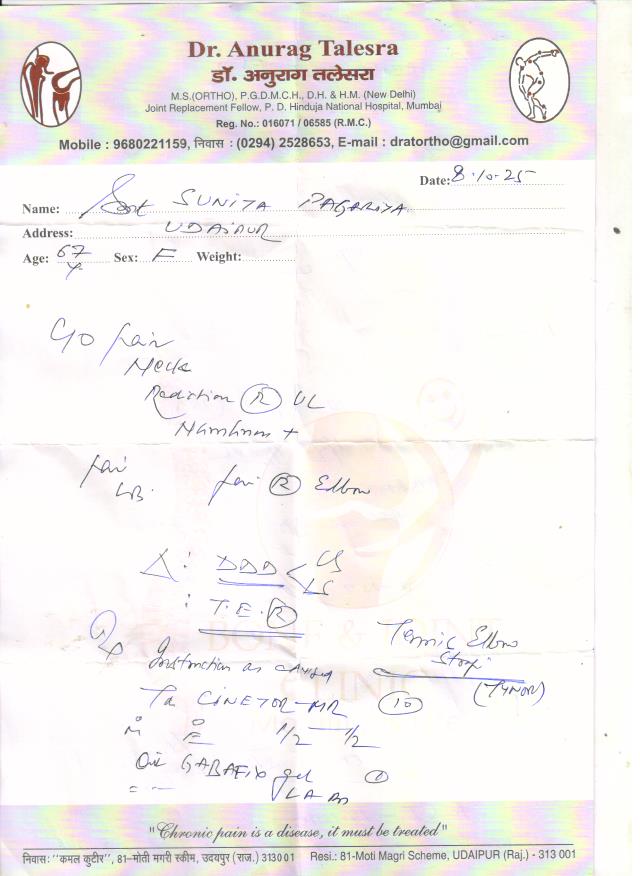 Dr. Anurag Talesra
डॉ. अनुराग तलेसरा
M.S.(ORTHO), P.G.D.M.C.H., D.H. & H.M. (New Delhi)
Joint Replacement Fellow, P. D. Hinduja National Hospital, Mumbai
Reg. No.: 016071 / 06585 (R.M.C.)
Mobile : 9680221159, निवास : (0294) 2528653, E-mail : dratortho@gmail.com
Date: 8.10.25
Name: Smt SUNITA PAGARIYA
Address: UDAIPUR
Age: 67 y Sex: F Weight:
C/O pain
Neck
Radiation (R) UL
Numbness +
pain
LB.
pain (R) Elbow
Δ : DDD < CS
LS
: T.E. (R)
Rx Instruction as
Tennis Elbow
Strap
(TYNOR)
Ta CINETOR-MR (10)
M E 1/2 — 1/2
GABAFIX gel (1)
LA
"Chronic pain is a disease, it must be treated"
निवास: "कमल कुटीर", 81-मोती मगरी स्कीम, उदयपुर (राज.) 313001 Resi.: 81-Moti Magri Scheme, UDAIPUR (Raj.) - 313 001